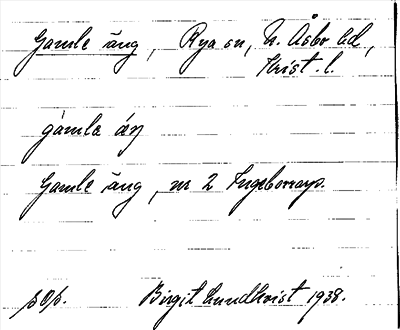 Gamle äng, Rya sn, N. Åsbo hd,
Krist. l.
gamla äŋ
Gamle äng, nr 2 Ingeborrarp.
Birgit Lundkvist 1938.